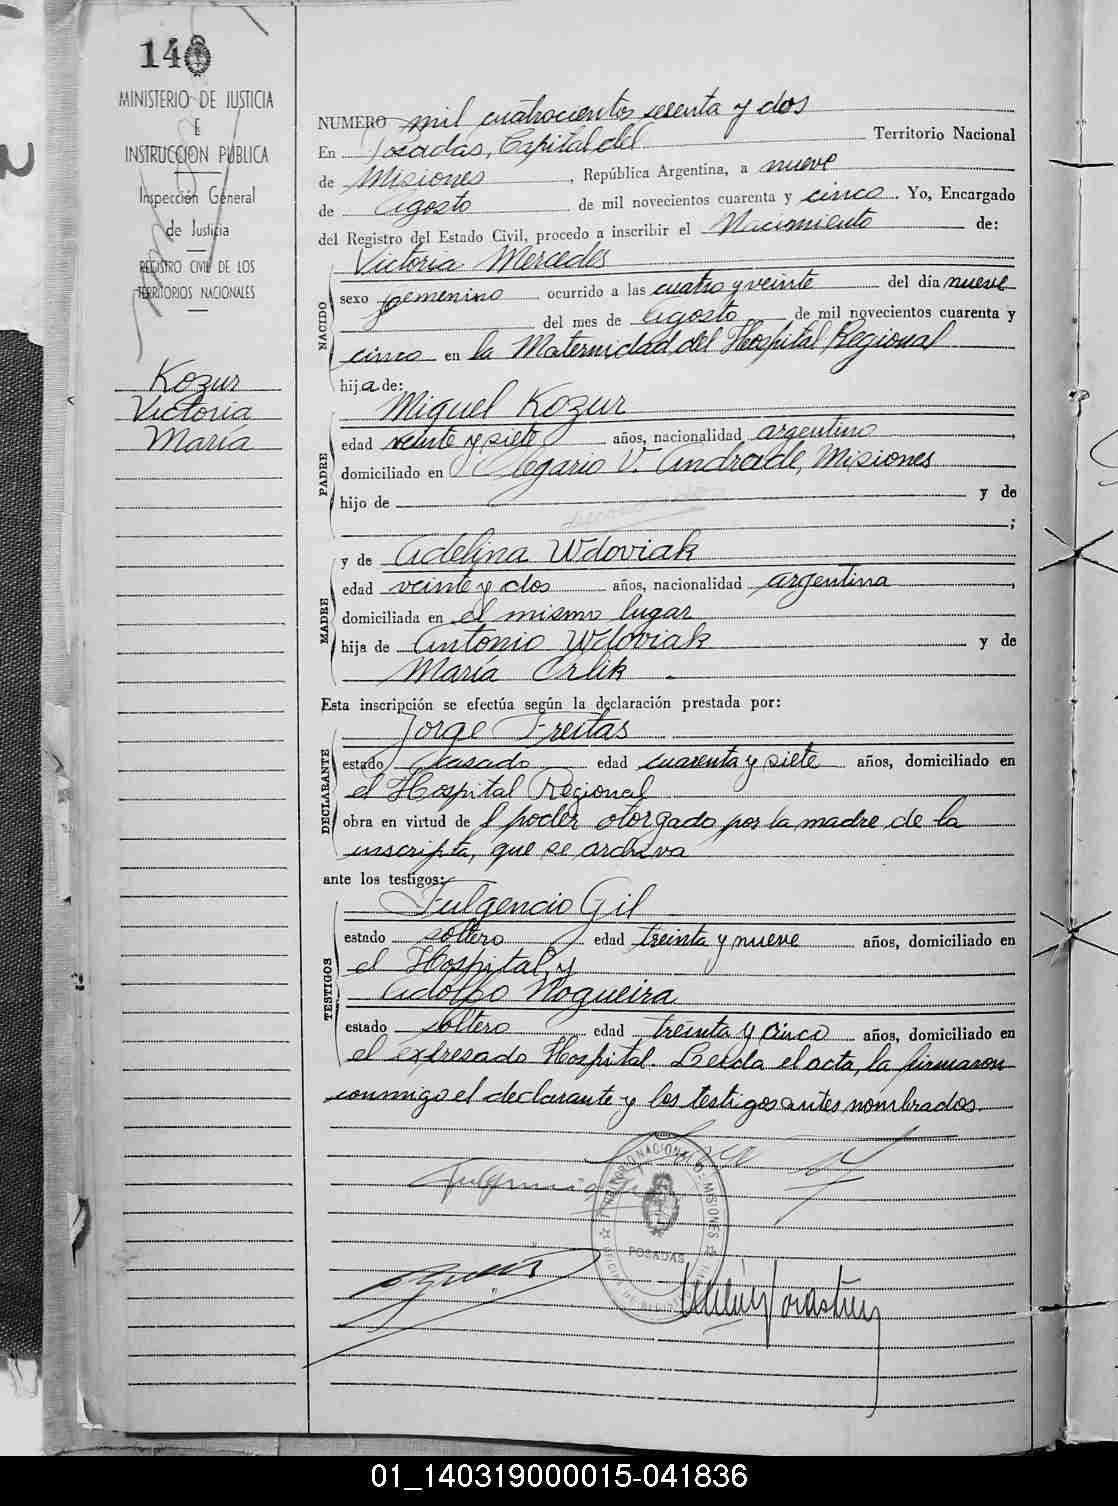 148
MINISTERIO DE JUSTICIA
E
INSTRUCCION PUBLICA
Inspección General
de Justicia
REGISTRO CIVIL DE LOS
TERRITORIOS NACIONALES
Kozur
Victoria
María
NUMERO mil cuatrocientos sesenta y dos
En Posadas, Capital del Territorio Nacional
de Misiones, República Argentina, a nueve
de Agosto de mil novecientos cuarenta y cinco. Yo, Encargado
del Registro del Estado Civil, procedo a inscribir el Nacimiento de:
NACIDO
Victoria Mercedes
sexo femenino ocurrido a las cuatro y veinte del día nueve
del mes de Agosto de mil novecientos cuarenta y
cinco en la Maternidad del Hospital Regional
hija de:
PADRE
Miguel Kozur
edad veinte y siete años, nacionalidad argentino,
domiciliado en Olegario V. Andrade, Misiones
hijo de y de
;
MADRE
y de Adelina Wdoviak
edad veinte y dos años, nacionalidad argentina,
domiciliada en el mismo lugar
hija de Antonio Wdoviak y de
María Orlik.
Esta inscripción se efectúa según la declaración prestada por:
DECLARANTE
Jorge Freitas
estado casado edad cuarenta y siete años, domiciliado en
el Hospital Regional
obra en virtud de l poder otorgado por la madre de la
inscripta, que se archiva
ante los testigos:
TESTIGOS
Fulgencio Gil
estado soltero edad treinta y nueve años, domiciliado en
el Hospital, y
Adolfo Nogueira
estado soltero edad treinta y cinco años, domiciliado en
el expresado Hospital. Leída el acta, la firmaron
conmigo el declarante y los testigos antes nombrados.
Fulgencio Gil
TERRITORIO NACIONAL DE MISIONES
POSADAS
01_140319000015-041836